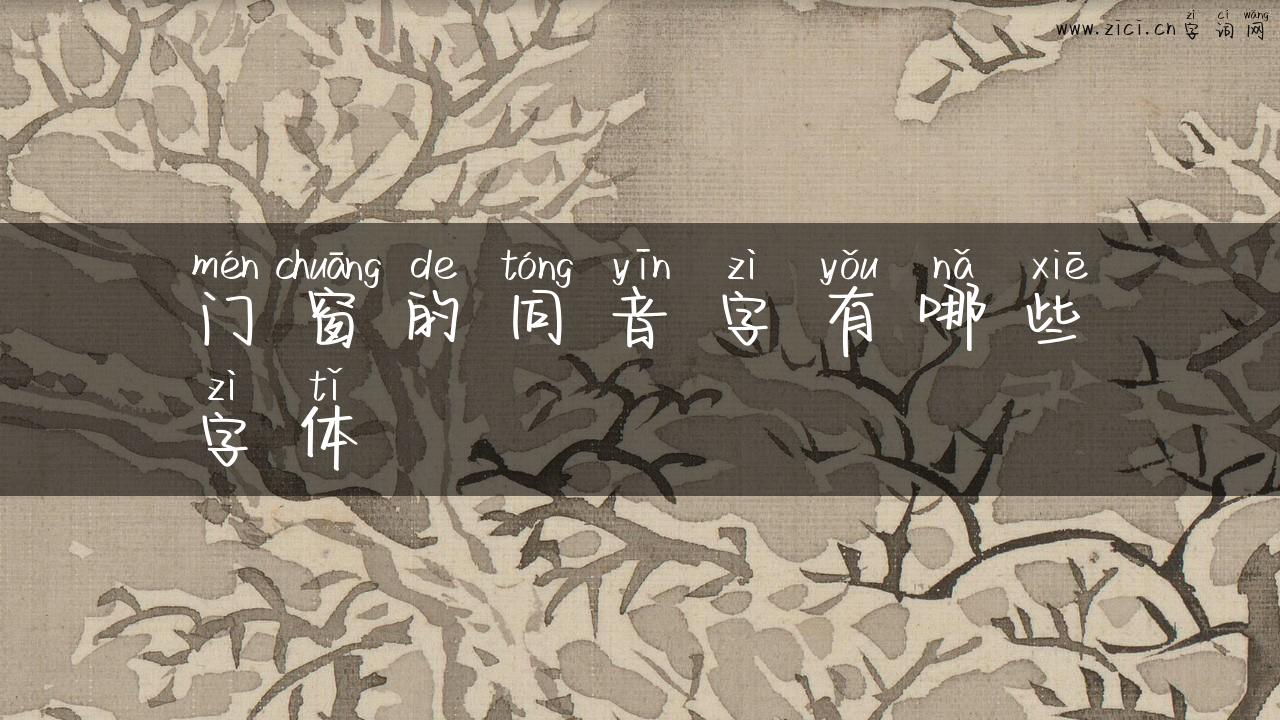 zì cí wǎng
www.zici.cn 字词网
mén chuāng de tóng yīn zì yǒu nǎ xiē
门窗的同音字有哪些
zì tǐ
字体